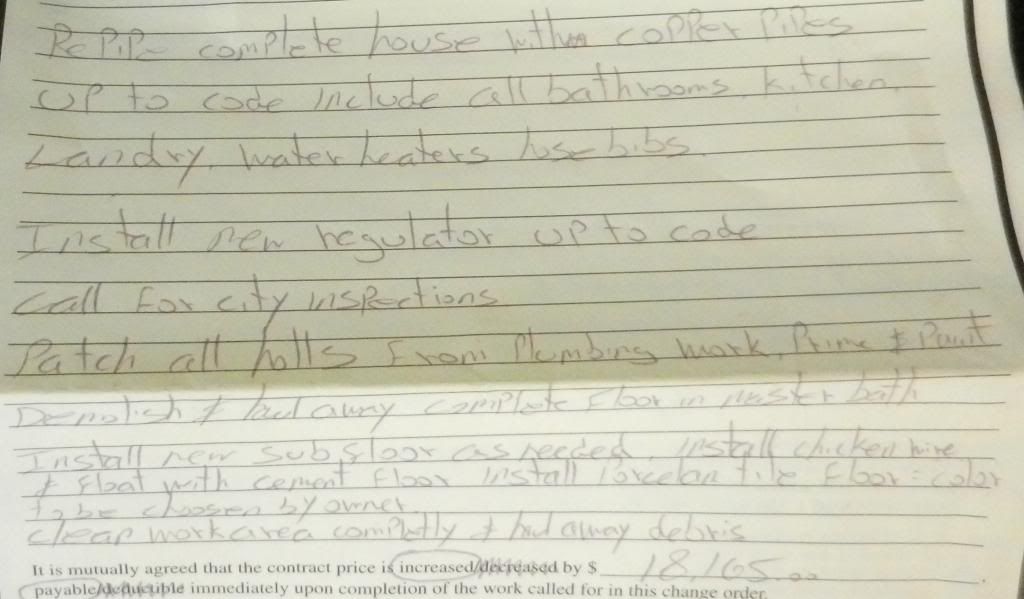 RePiPe complete house with copper Pipes
up to code include all bathrooms, kitchen,
Landry, water heaters hose bibs.
Install new regulator up to code
call For city inspections
Patch all holls From Plumbing work, Prime & Paint
Demolish & haul away complete Floor in Master bath
Install new subfloor as needed, install chicken wire
& Float with cement Floor install Porcelan tile Floor = color
to be choosen by owner.
clean work area completly & haul away debris
It is mutually agreed that the contract price is increased/decreased by $ 18,165.00.
payable/deductible immediately upon completion of the work called for in this change order.